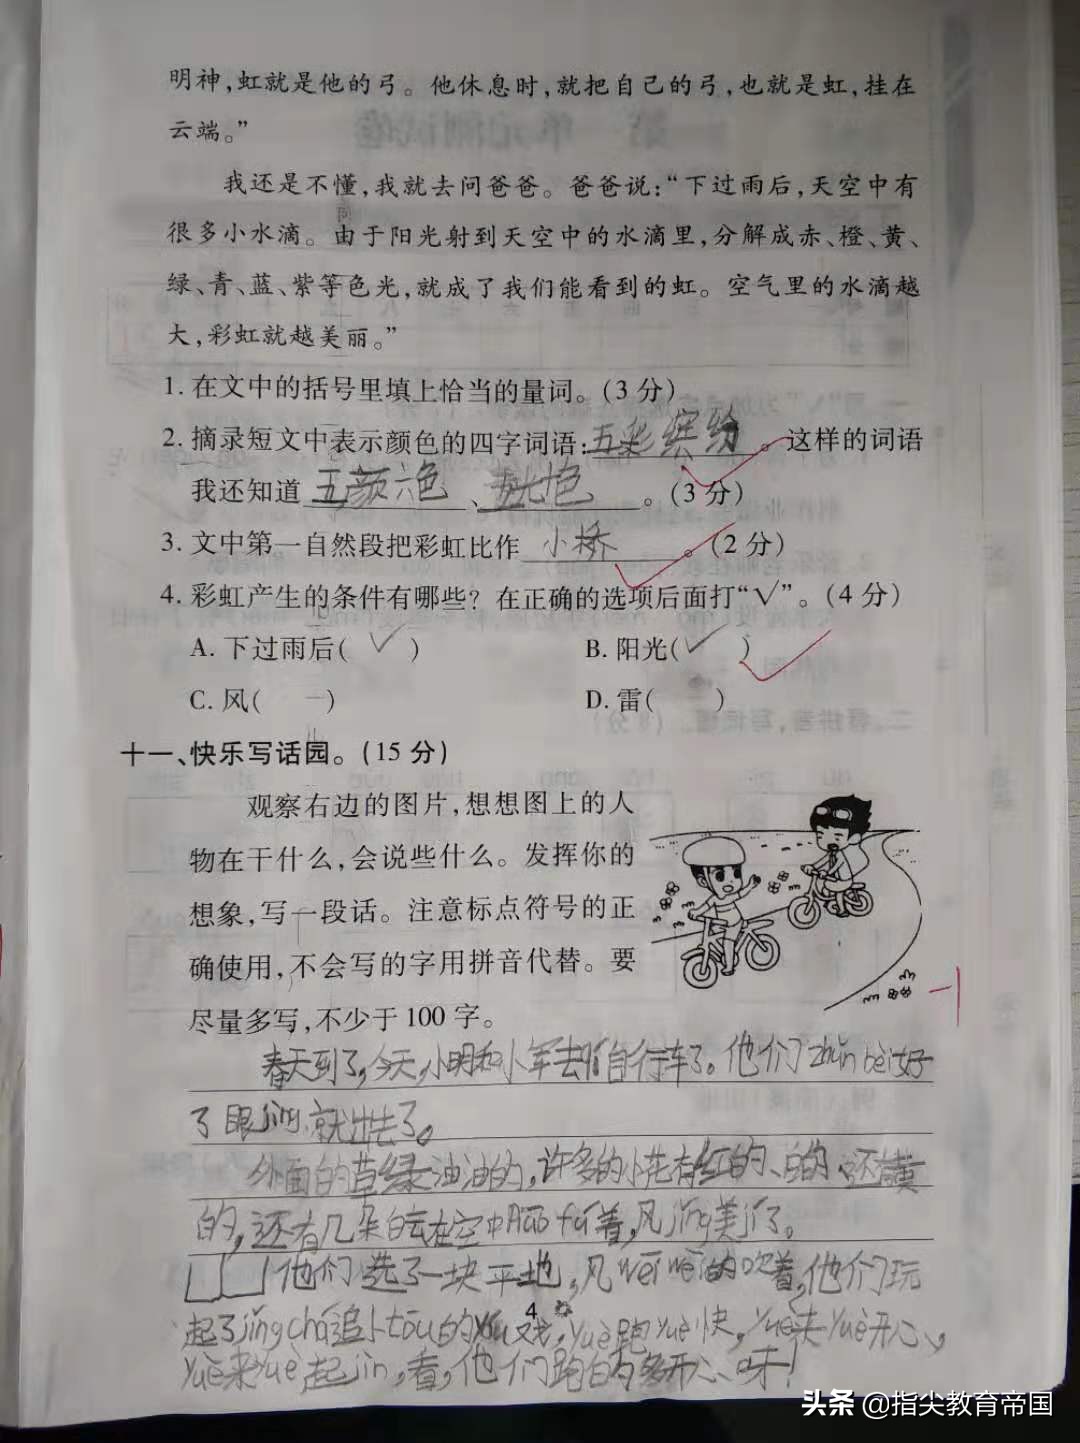 明神,虹就是他的弓。他休息时,就把自己的弓,也就是虹,挂在
云端。”
我还是不懂,我就去问爸爸。爸爸说:“下过雨后,天空中有
很多小水滴。由于阳光射到天空中的水滴里,分解成赤、橙、黄、
绿、青、蓝、紫等色光,就成了我们能看到的虹。空气里的水滴越
大,彩虹就越美丽。”
1. 在文中的括号里填上恰当的量词。(3 分)
2. 摘录短文中表示颜色的四字词语:五彩缤纷。这样的词语
我还知道 五颜六色、。(3 分)
3. 文中第一自然段把彩虹比作 小桥。(2 分)
4. 彩虹产生的条件有哪些?在正确的选项后面打“√”。(4 分)
A. 下过雨后( ✓ ) B. 阳光( ✓ )
C. 风( ) D. 雷( )
十一、快乐写话园。(15 分)
观察右边的图片,想想图上的人
物在干什么,会说些什么。发挥你的
想象,写一段话。注意标点符号的正
确使用,不会写的字用拼音代替。要
尽量多写,不少于 100 字。
-1
春天到了,今天,小明和小军去自行车了。他们zhǔn bèi好
了眼jìng就出去了。
外面的草绿油油的,许多的小花有红的、白的、还有黄
的,还有几朵白云在空中着,风jǐng美jí了。
他们选了一块平地,风wēi wēi的吹着,他们玩
起了jǐng chá追小tōu的yóu戏,yuè跑yuè快,yuè来yuè开心,
yuè来yuè起jìn,看,他们跑的多开心呀!
4
头条 @指尖教育帝国